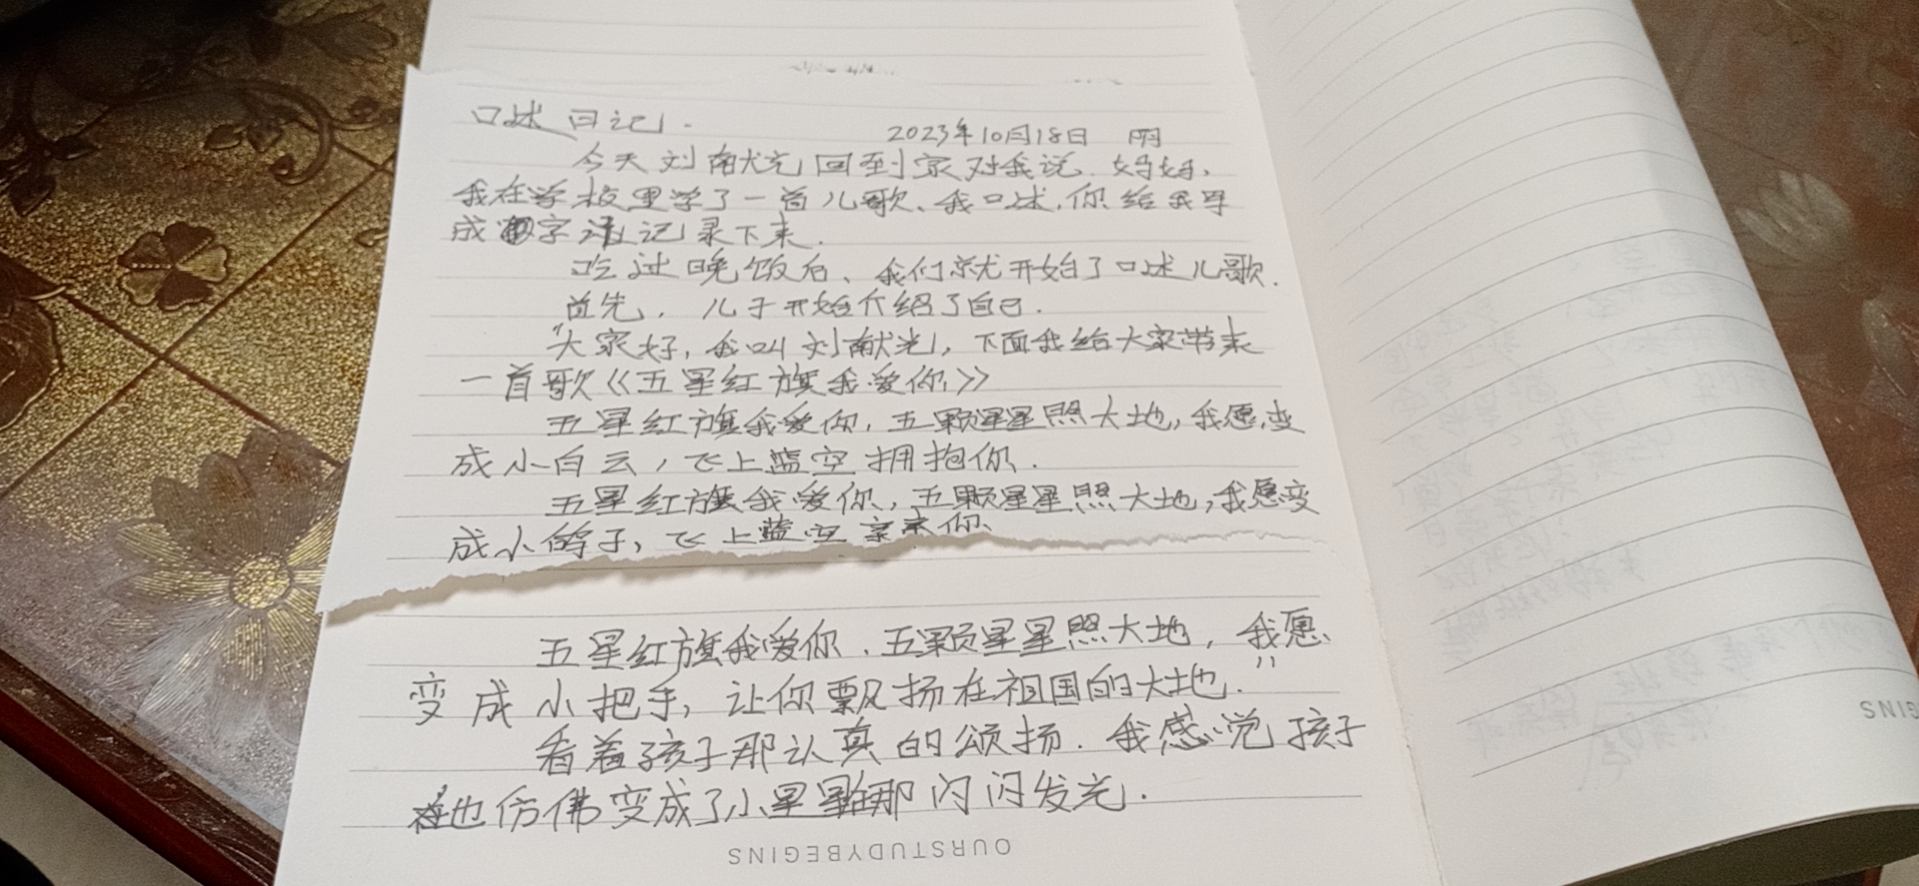 口述日记.
2023年10月18日 阴
今天刘献光回到家对我说.妈妈,
我在学校里学了一首儿歌、我口述,你给我写
成字记录下来.
吃过晚饭后、我们就开始了口述儿歌.
首先,儿子开始介绍了自己.
"大家好,我叫刘献光,下面我给大家带来
一首歌《五星红旗我爱你》
五星红旗我爱你,五颗星星照大地,我愿变
成小白云,飞上蓝空拥抱你.
五星红旗我爱你,五颗星星照大地,我愿变
成小鸽子,飞上蓝空亲亲你、
五星红旗我爱你.五颗星星照大地,我愿
变成小把手,让你飘扬在祖国的大地."
看着孩子那认真的颂扬.我感觉孩子
也仿佛变成了小星星在那闪闪发光.
OURSTUDYBEGINS